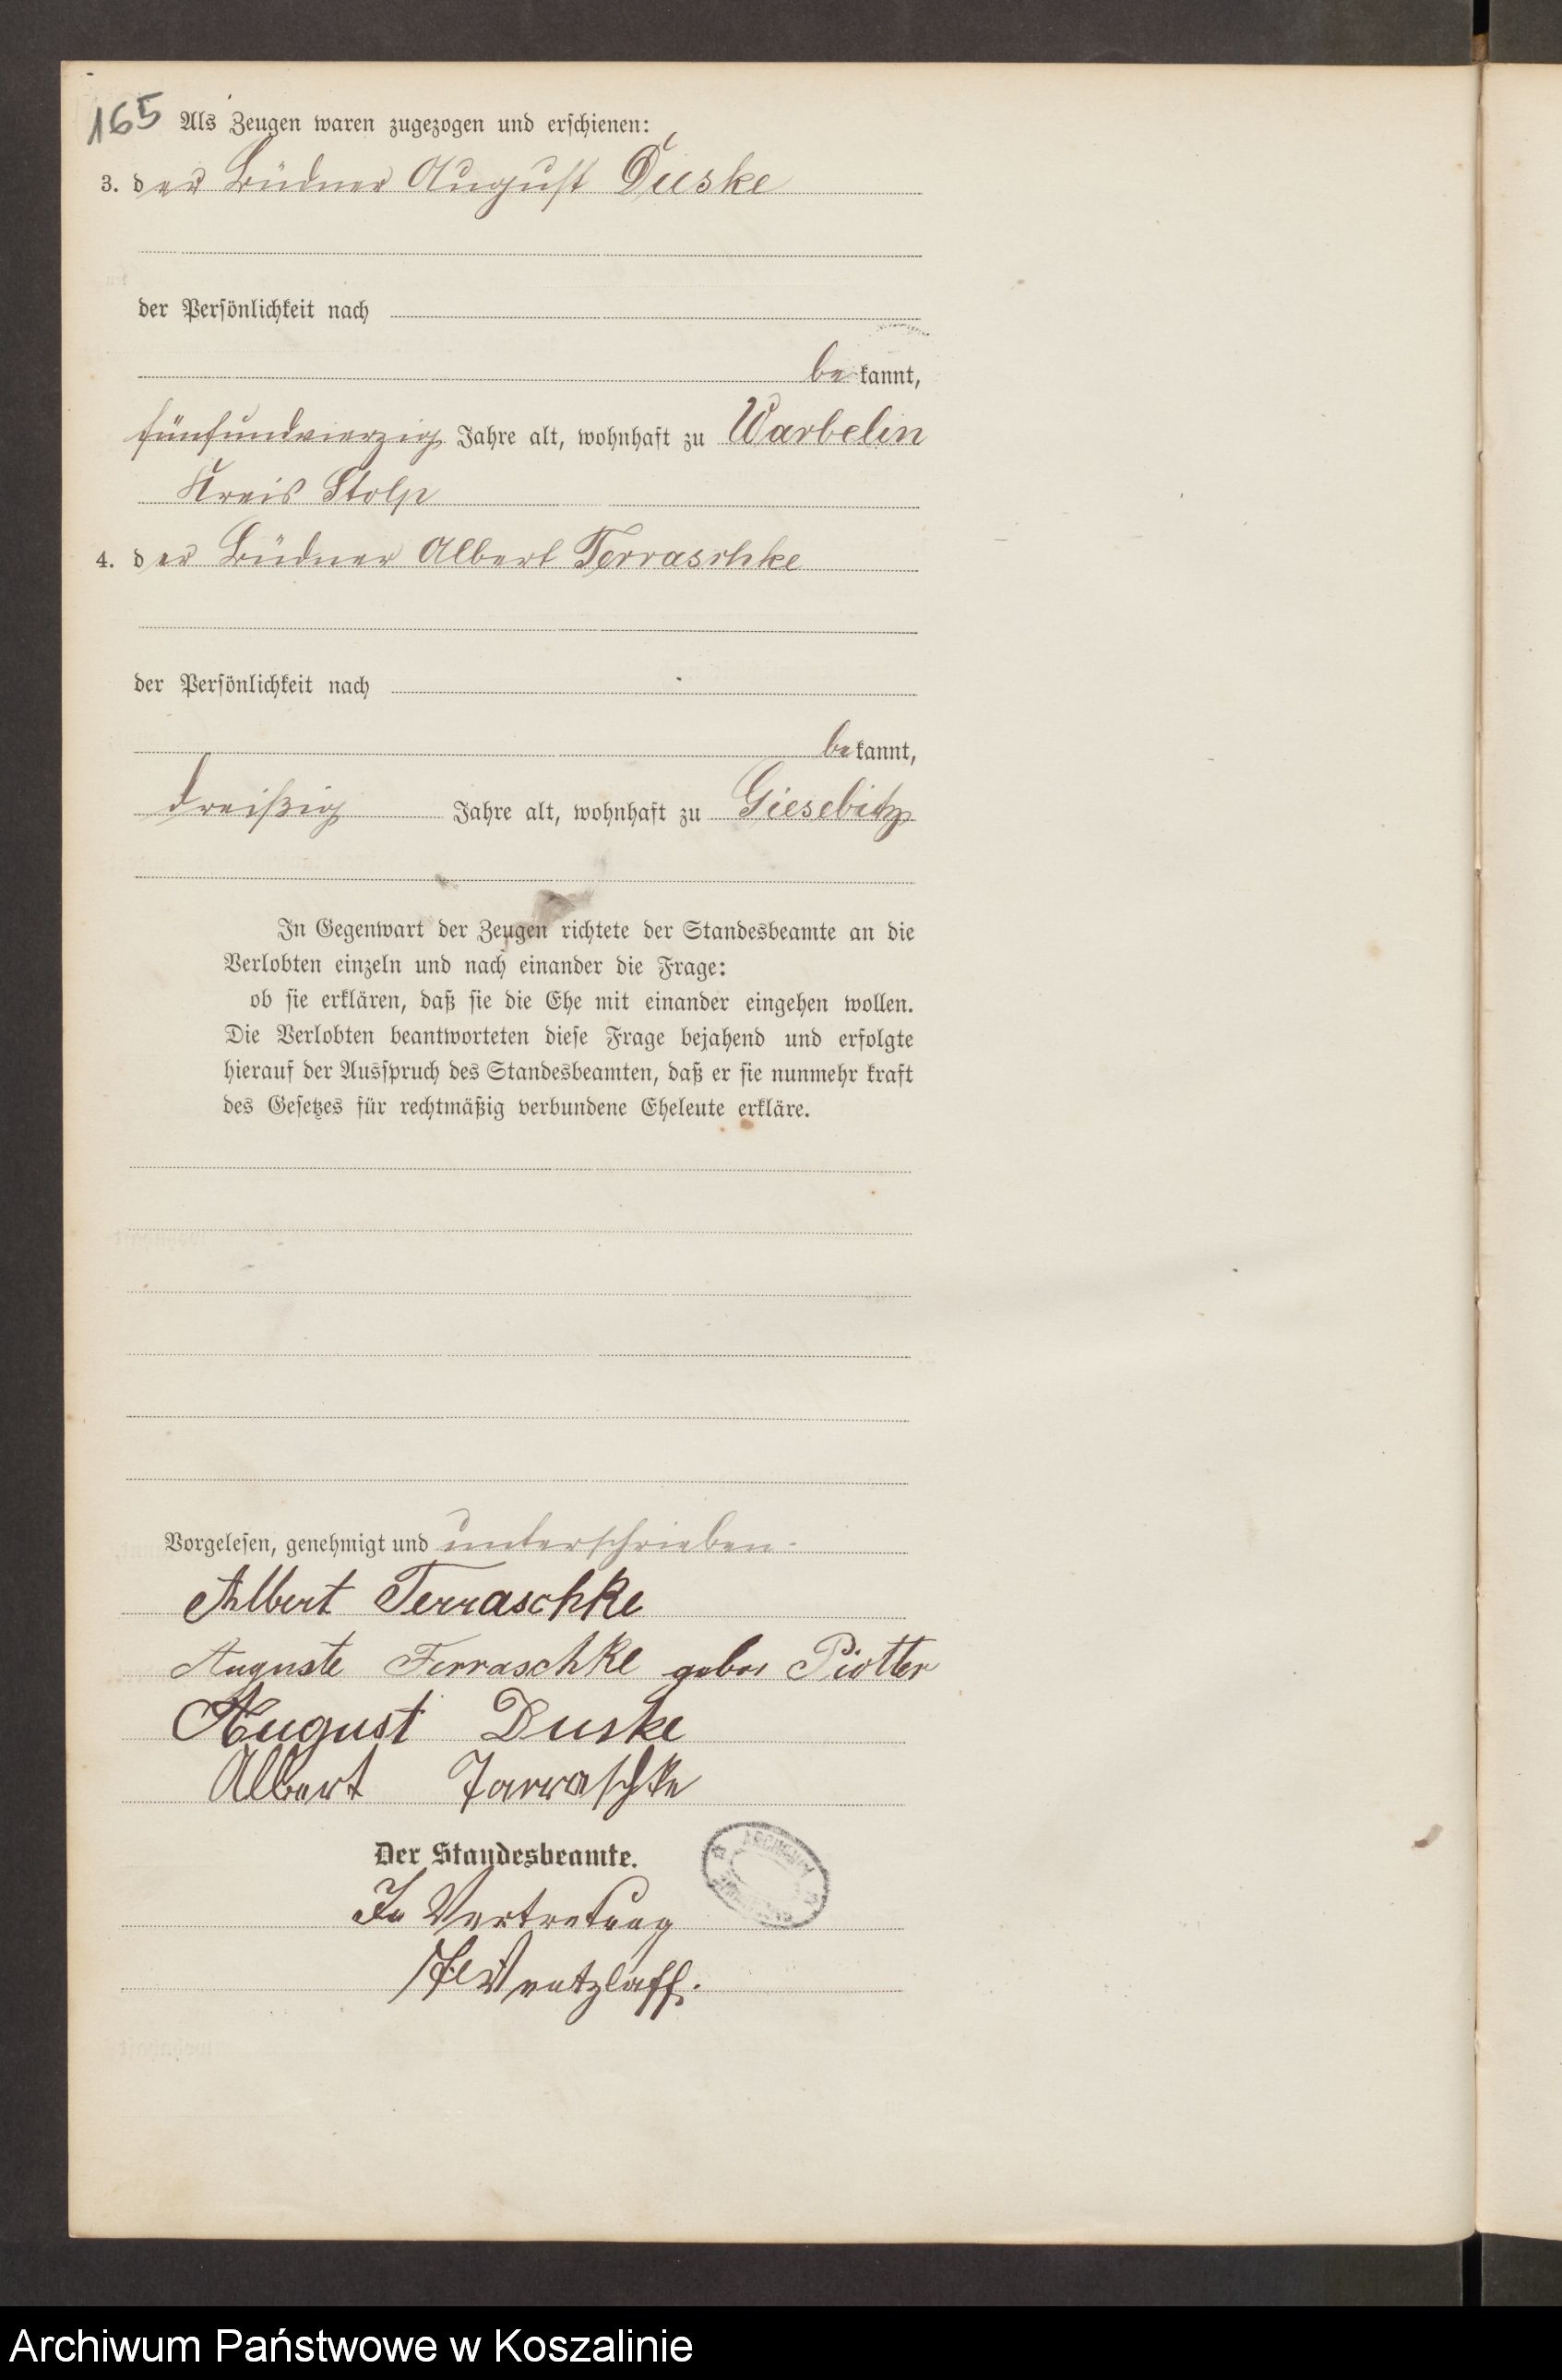 165 Als Zeugen waren zugezogen und erschienen:
3. der Büdner August Duske
der Persönlichkeit nach
bekannt,
fünfundvierzig Jahre alt, wohnhaft zu Warbelin
Kreis Stolp
4. der Büdner Albert Terraschke
der Persönlichkeit nach
bekannt,
dreißig Jahre alt, wohnhaft zu Giesebitz
In Gegenwart der Zeugen richtete der Standesbeamte an die
Verlobten einzeln und nach einander die Frage:
ob sie erklären, daß sie die Ehe mit einander eingehen wollen.
Die Verlobten beantworteten diese Frage bejahend und erfolgte
hierauf der Ausspruch des Standesbeamten, daß er sie nunmehr kraft
des Gesetzes für rechtmäßig verbundene Eheleute erkläre.
Vorgelesen, genehmigt und unterschrieben.
Albert Terraschke
Auguste Terraschke gebor Piotter
August Duske
Albert Tarraschke
Der Standesbeamte.
In Vertretung
Wentzlaff.
Archiwum Państwowe w Koszalinie